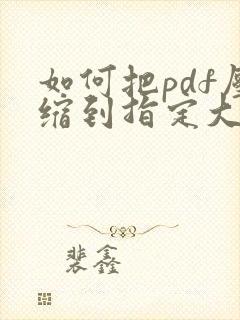 如何把pdf压
缩到指定大
裴鑫